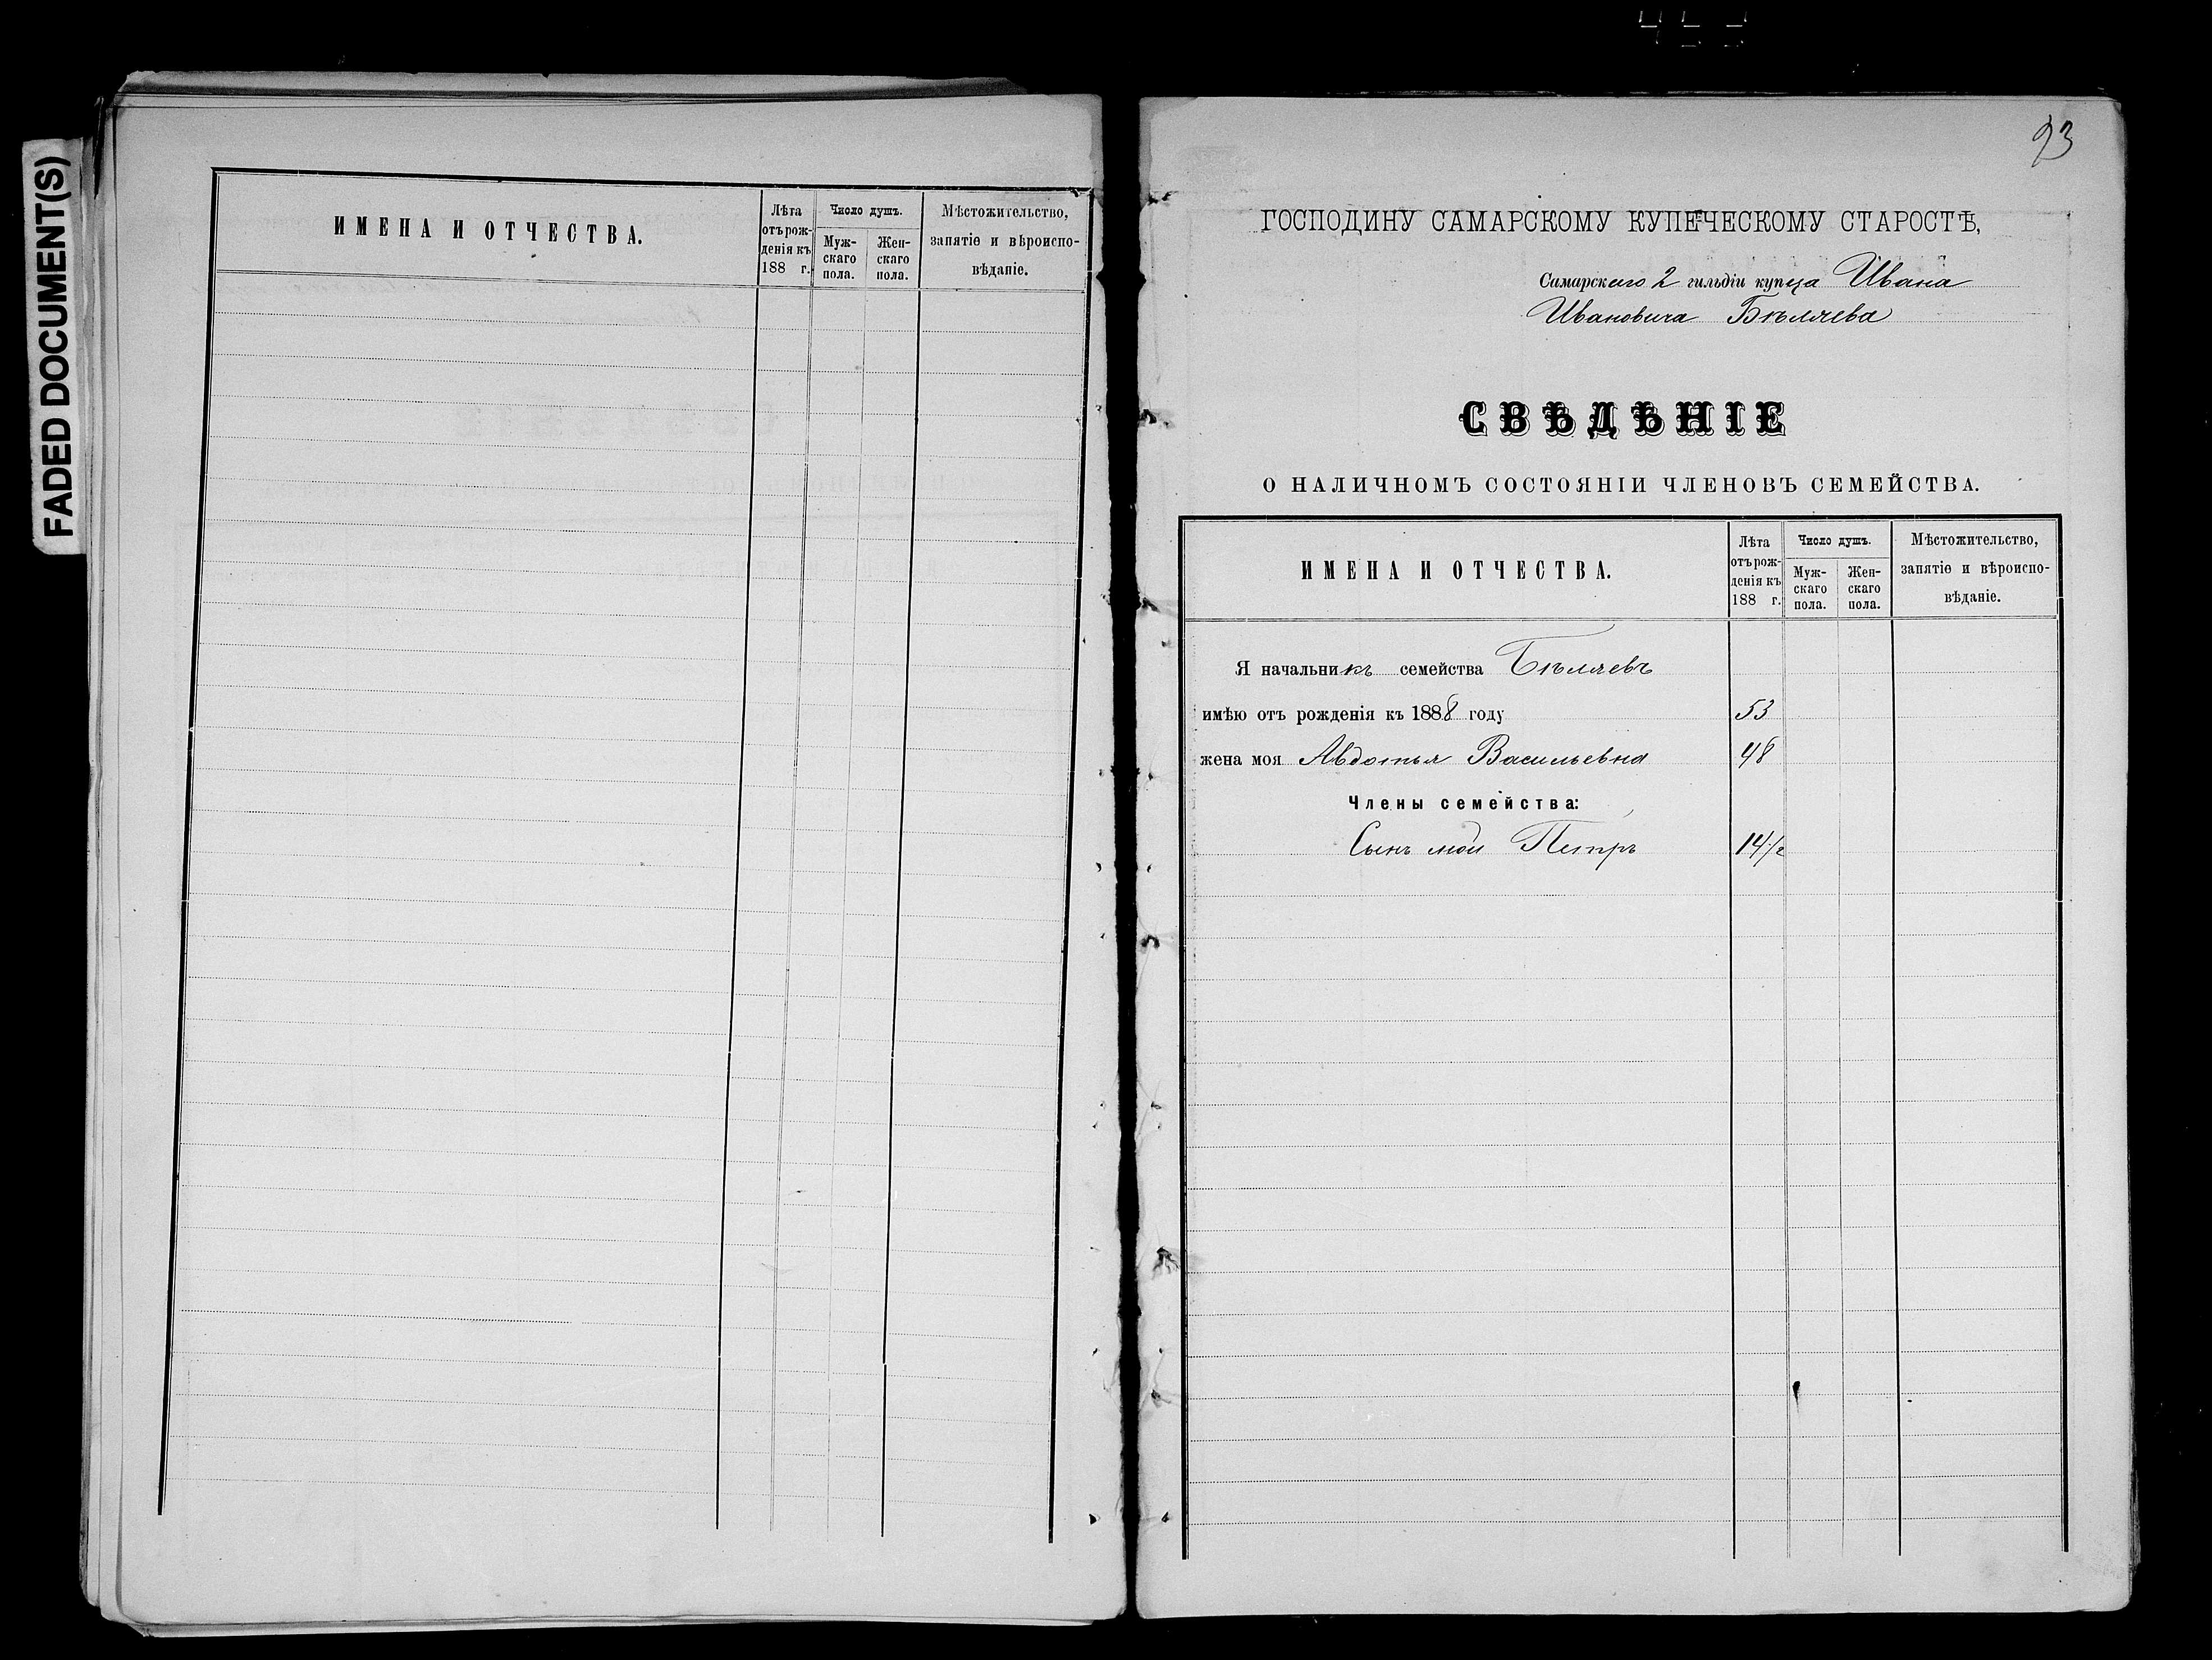 FADED DOCUMENT(S)
ИМЕНА И ОТЧЕСТВА.
Лѣта отъ рожденія къ 188 г.
Число душъ.
Мужскаго пола.
Женскаго пола.
Мѣстожительство, занятіе и вѣроисповѣданіе.
93
ГОСПОДИНУ САМАРСКОМУ КУПЕЧЕСКОМУ СТАРОСТѢ,
Самарскаго 2 гильдіи купца Ивана
Ивановича Бѣляева
СВѢДѢНІЕ
О НАЛИЧНОМЪ СОСТОЯНІИ ЧЛЕНОВЪ СЕМЕЙСТВА.
ИМЕНА И ОТЧЕСТВА.
Лѣта
отъ рож-
денія къ
188 г.
Число душъ.
Муж-
скаго
пола.
Жен-
скаго
пола.
Мѣстожительство,
занятіе и вѣроиспо-
вѣданіе.
Я начальникъ семейства Бѣляевъ
имѣю отъ рожденія къ 1888 году 53
жена моя Авдотья Васильевна 48
Члены семейства:
Сынъ мой Петръ 14 1/2